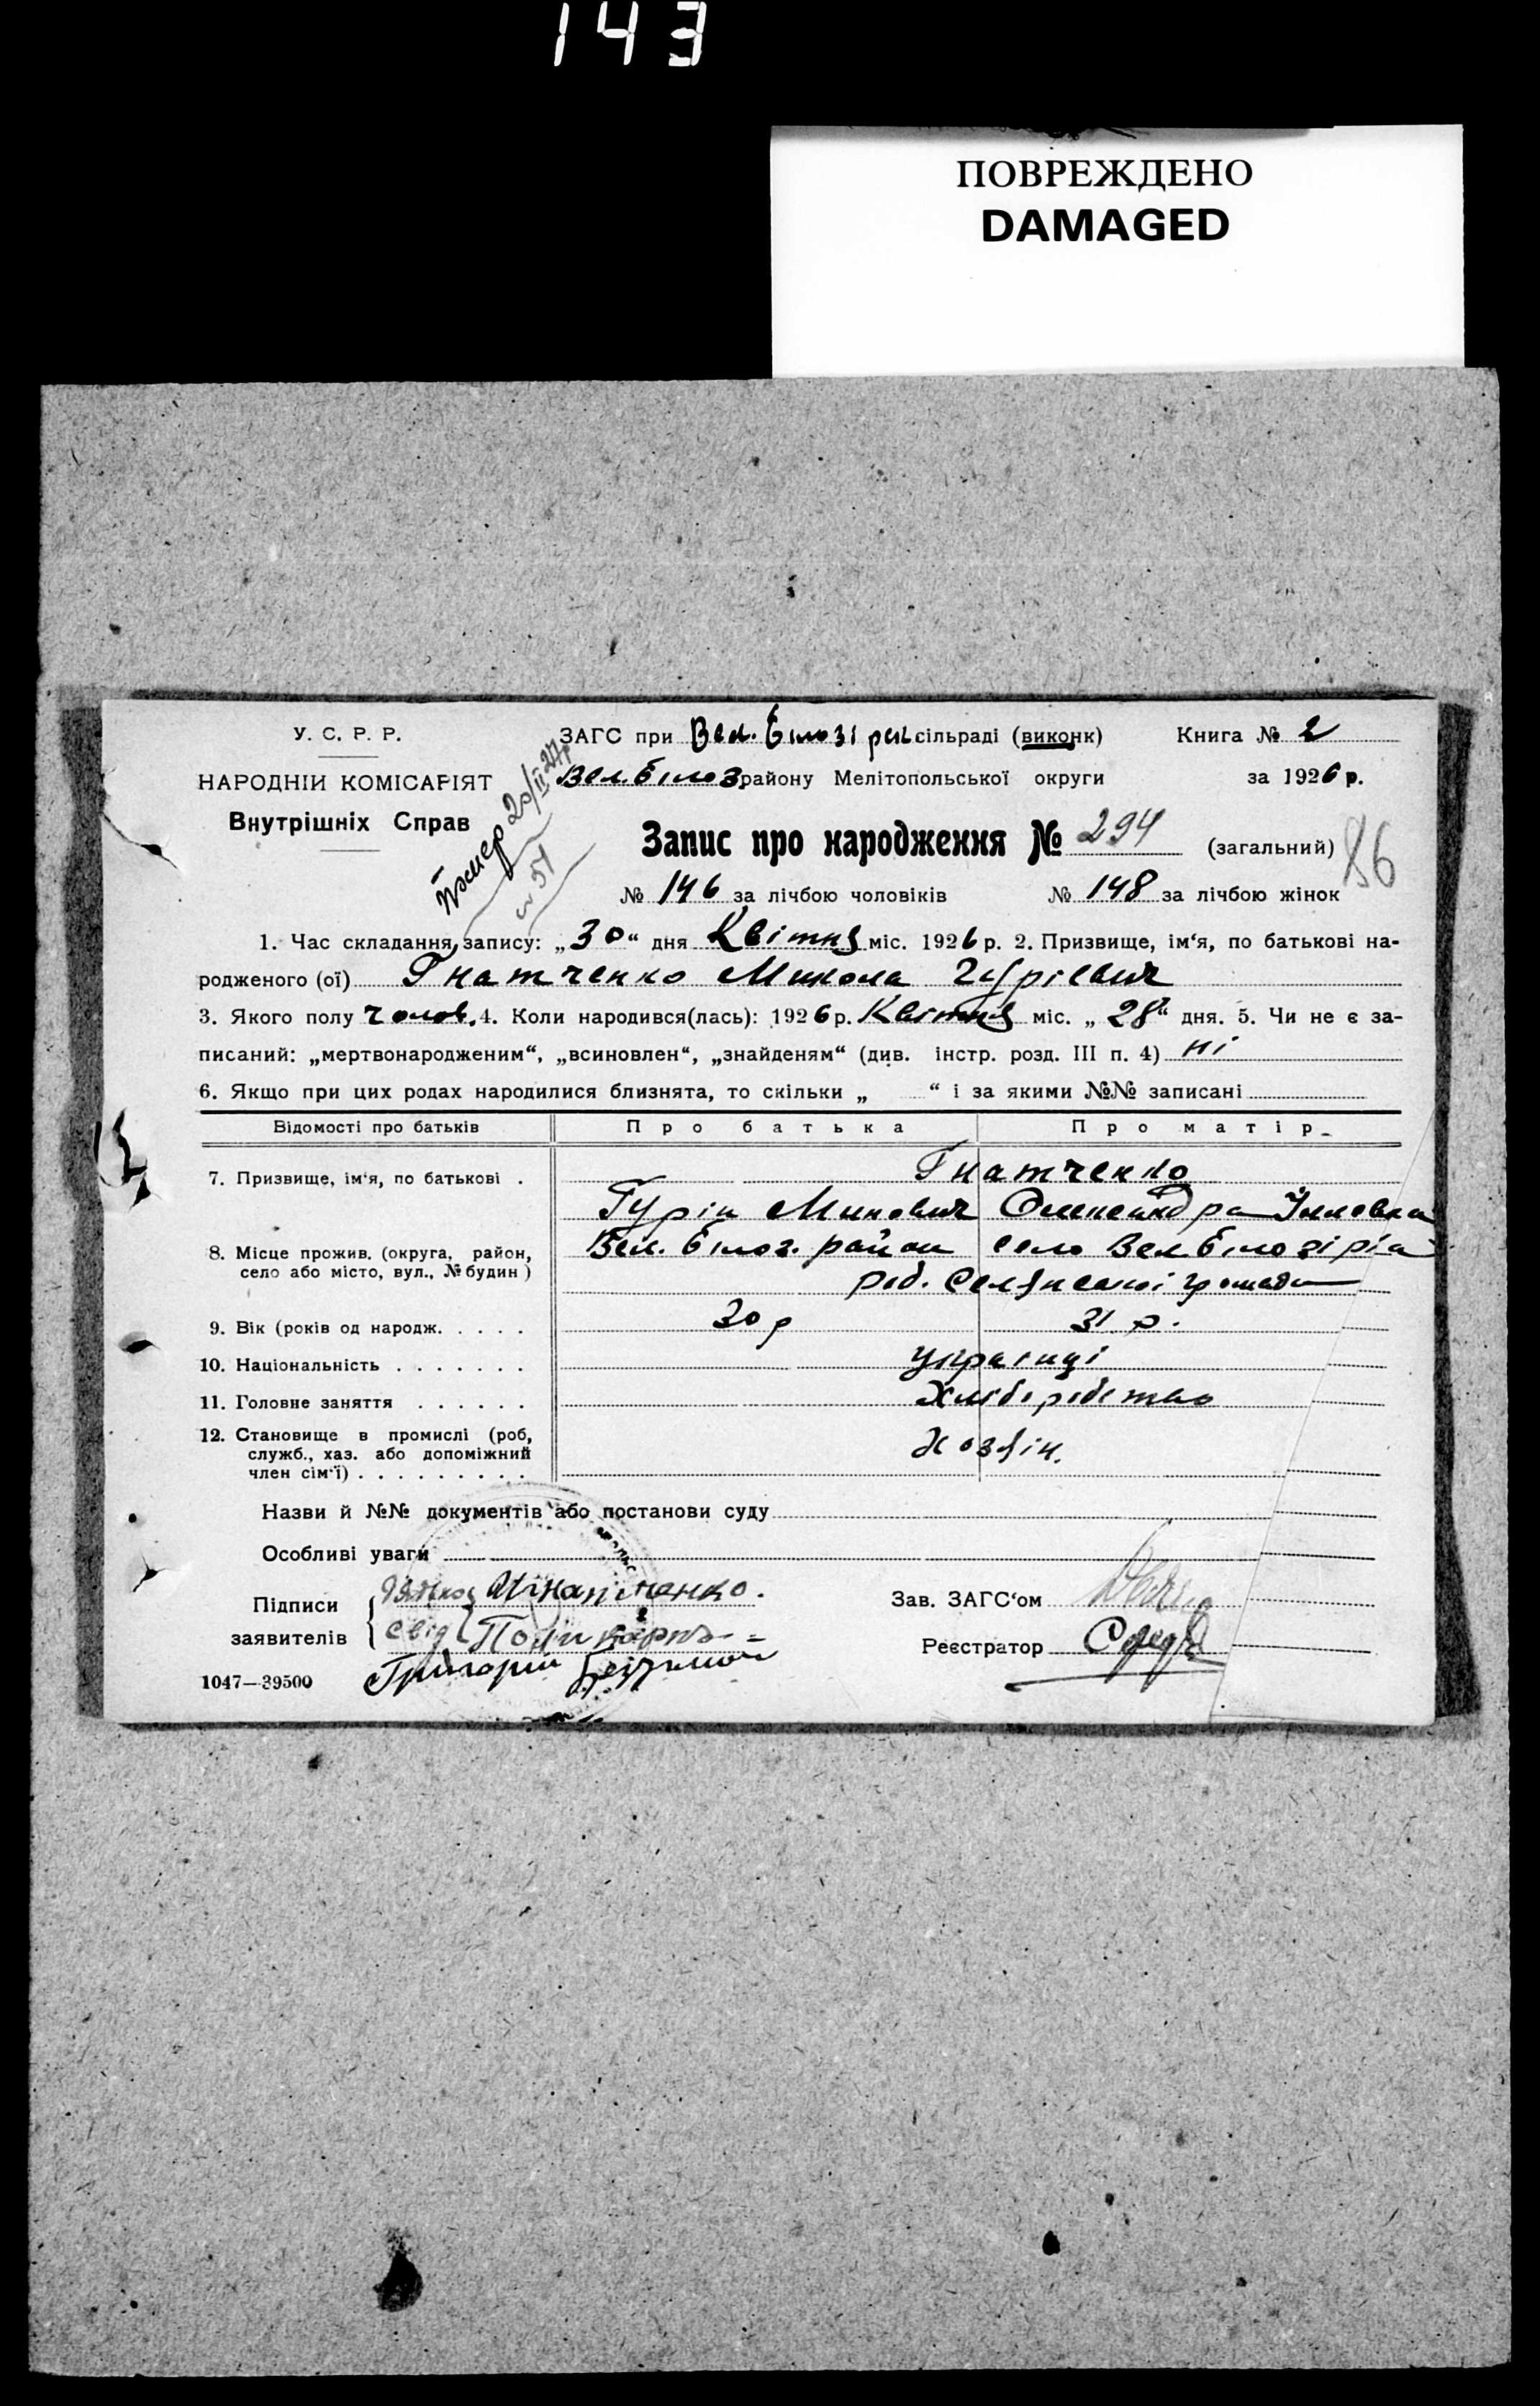 143
ПОВРЕЖДЕНО
DAMAGED
У. С. Р. Р.
НАРОДНІЙ КОМІСАРІЯТ
Внутрішніх Справ
помер 20/II 27р
№ 51
ЗАГС при Вел. Білозірск сільраді (виконк) Книга № 2
Вел. Білоз. району Мелітопольської округи за 1926 р.
Запис про народження № 294 (загальний) 86
№ 146 за лічбою чоловіків № 148 за лічбою жінок
1. Час складання запису: „30“ дня Квітня міс. 1926 р. 2. Призвище, ім‘я, по батькові на-
родженого (ої) Гнатченко Микола Гурієвич
3. Якого полу Чолов. 4. Коли народився(лась): 1926 р. Квітня міс. „28“ дня. 5. Чи не є за-
писаний: „мертвонародженим“, „всиновлен“, „знайденям“ (див. інстр. розд. III п. 4) ні
6. Якщо при цих родах народилися близнята, то скільки „ “ і за якими №№ записані
Відомості про батьків Про батька Про матір
7. Призвище, ім‘я, по батькові . Гнатченко
Гурій Минович Олександра
8. Місце прожив. (округа, район, Вел. Білоз. район село Вел. Білозірка
село або місто, вул., № будин)
род. Селянської громади
9. Вік (років од народж. . . . . 30 р 31 р.
10. Національність . . . . . . . українці
11. Головне заняття . . . . . . Хліборобство
12. Становище в промислі (роб, Хозяін.
служб., хаз. або допоміжний
член сім‘ї) . . . . . . . . .
Назви й №№ документів або постанови суду
Особливі уваги
Підписи
заявителів
свід
Григорій
Зав. ЗАГС‘ом
Реєстратор
1047—39500